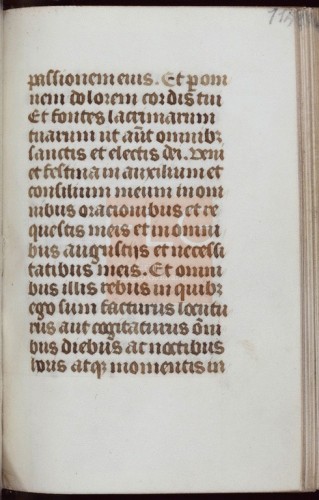 passionem eius. Et p om
nem dolorem cordis tui
Et fontes lacrimarum
tuarum ut cū omnibꝫ
sanctis et electis dei. Veni
et festina in auxilium et
consilium meum in om
nibus oracionibus et re
questis meis et in omni
bus angustijs et necessi
tatibus meis. Et omni
bus illis rebus in quibꝫ
ego sum facturus locutu
rus aut cogitaturus om̄i
bus diebus ac noctibus
horis atqꝫ momentis in